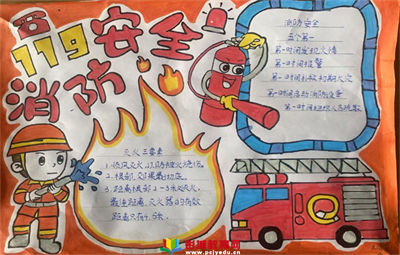 119安全
消防
消防安全
五个第一
第一时间发现火情
第一时间报警
第一时间扑救初期火灾
第一时间启动消防设备
第一时间组织人员疏散
灭火三要素
1. 顺风灭火,以防被火烧伤。
2. 根部,范围最彻底。
3. 距离根部2-3米处灭火,
最远距离,灭火器的有效
距离只有4.5米.
www.pcjyedu.cn